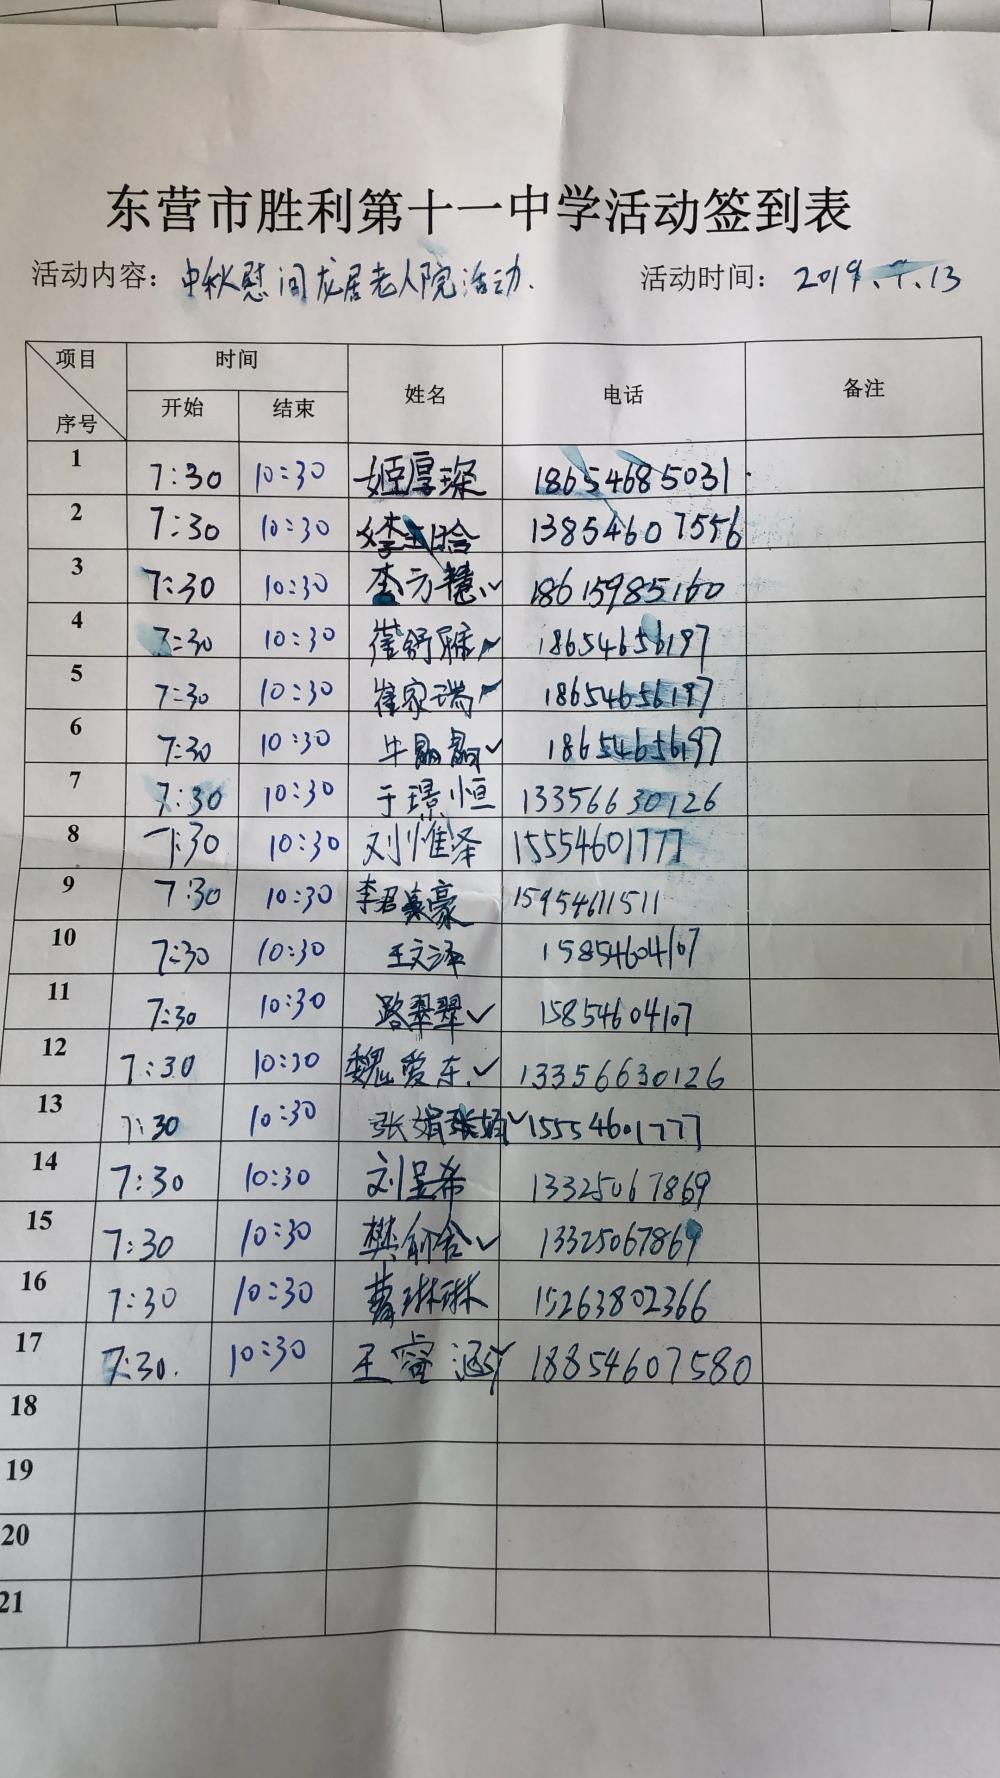 东营市胜利第十一中学活动签到表
活动内容：中秋慰问龙居老人院活动. 活动时间：2019.9.13
项目 时间 姓名 电话 备注
序号 开始 结束
1 7:30 10:30 姬厚琛 18654685031
2 7:30 10:30 13854607556
3 7:30 10:30 李方慧 ✓ 18615985160
4 7:30 10:30 崔舒雅 ✓ 18654656197
5 7:30 10:30 崔家瑞 ✓ 18654656197
6 7:30 10:30 牛晶晶 ✓ 18654656197
7 7:30 10:30 于璟恒 13356630126
8 7:30 10:30 刘惟泽 15554601777
9 7:30 10:30 李君豪 15954611511
10 7:30 10:30 王文泽 15854604107
11 7:30 10:30 路翠翠 ✓ 15854604107
12 7:30 10:30 魏爱东 ✓ 13356630126
13 7:30 10:30 张娟 ✓ 15554601777
14 7:30 10:30 刘昱希 13325067869
15 7:30 10:30 樊俞含 ✓ 13325067869
16 7:30 10:30 曹琳琳 15263802366
17 7:30. 10:30 王睿涵 18854607580
18
19
20
21